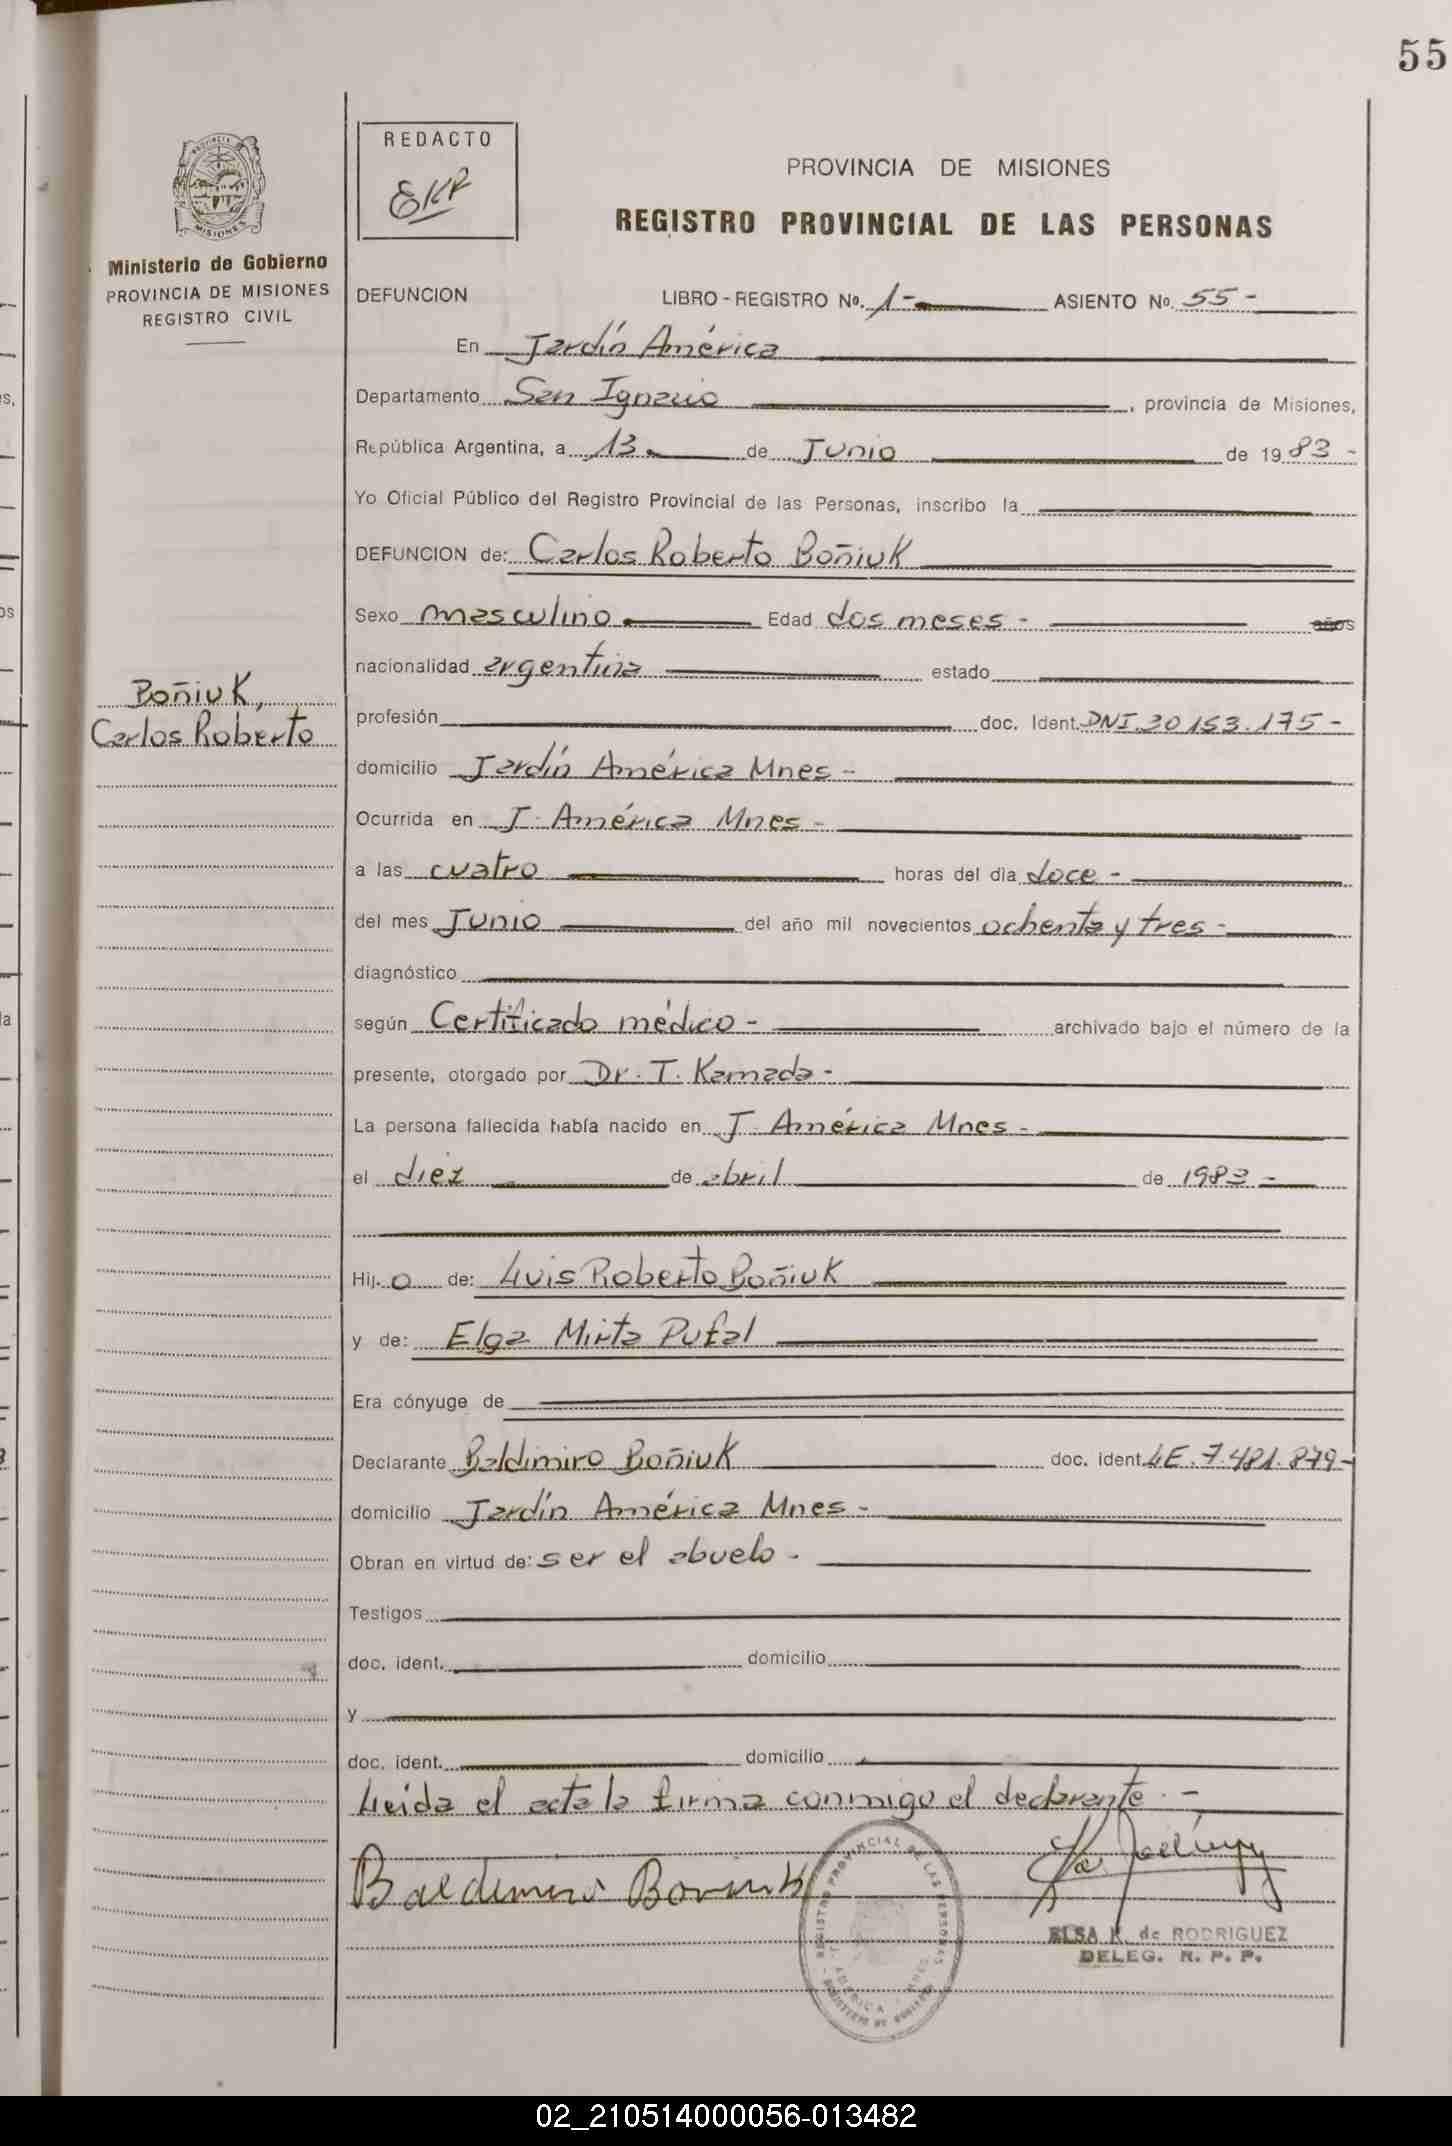 55
REDACTO
EKR
PROVINCIA DE MISIONES
REGISTRO PROVINCIAL DE LAS PERSONAS
PROVINCIA DE
MISIONES
Ministerio de Gobierno
PROVINCIA DE MISIONES
REGISTRO CIVIL
DEFUNCION LIBRO - REGISTRO Nº. 1- ASIENTO Nº. 55 -
En Jardín América
Departamento San Ignacio , provincia de Misiones,
República Argentina, a 13 de Junio de 19 83 -
Yo Oficial Público del Registro Provincial de las Personas, inscribo la
DEFUNCION de: Carlos Roberto Boñiuk
Sexo masculino Edad dos meses - años
nacionalidad argentina estado
Boñiuk,
Carlos Roberto
profesión doc. Ident. DNI.30 153.175 -
domicilio Jardín América Mnes -
Ocurrida en J. América Mnes -
a las cuatro horas del día doce -
del mes Junio del año mil novecientos ochenta y tres -
diagnóstico
según Certificado médico - archivado bajo el número de la
presente, otorgado por Dr. T. Kamada -
La persona fallecida había nacido en J. América Mnes -
el diez de abril de 1983 -
Hij. o de: Luis Roberto Boñiuk
y de: Elga Mirta Pufal
Era cónyuge de
Declarante Baldimiro Boñiuk doc. ident. LE.7.481.879-
domicilio Jardín América Mnes -
Obran en virtud de: ser el abuelo -
Testigos
doc. ident. domicilio
y
doc. ident. domicilio
Leida el acta la firma conmigo el declarante. -
Baldimiro Boniuk
REGISTRO PROVINCIAL DE LAS PERSONAS
AMERICA
MINISTERIO DE GOBIERNO
ELSA K. de RODRIGUEZ
DELEG. R. P. P.
02_210514000056-013482